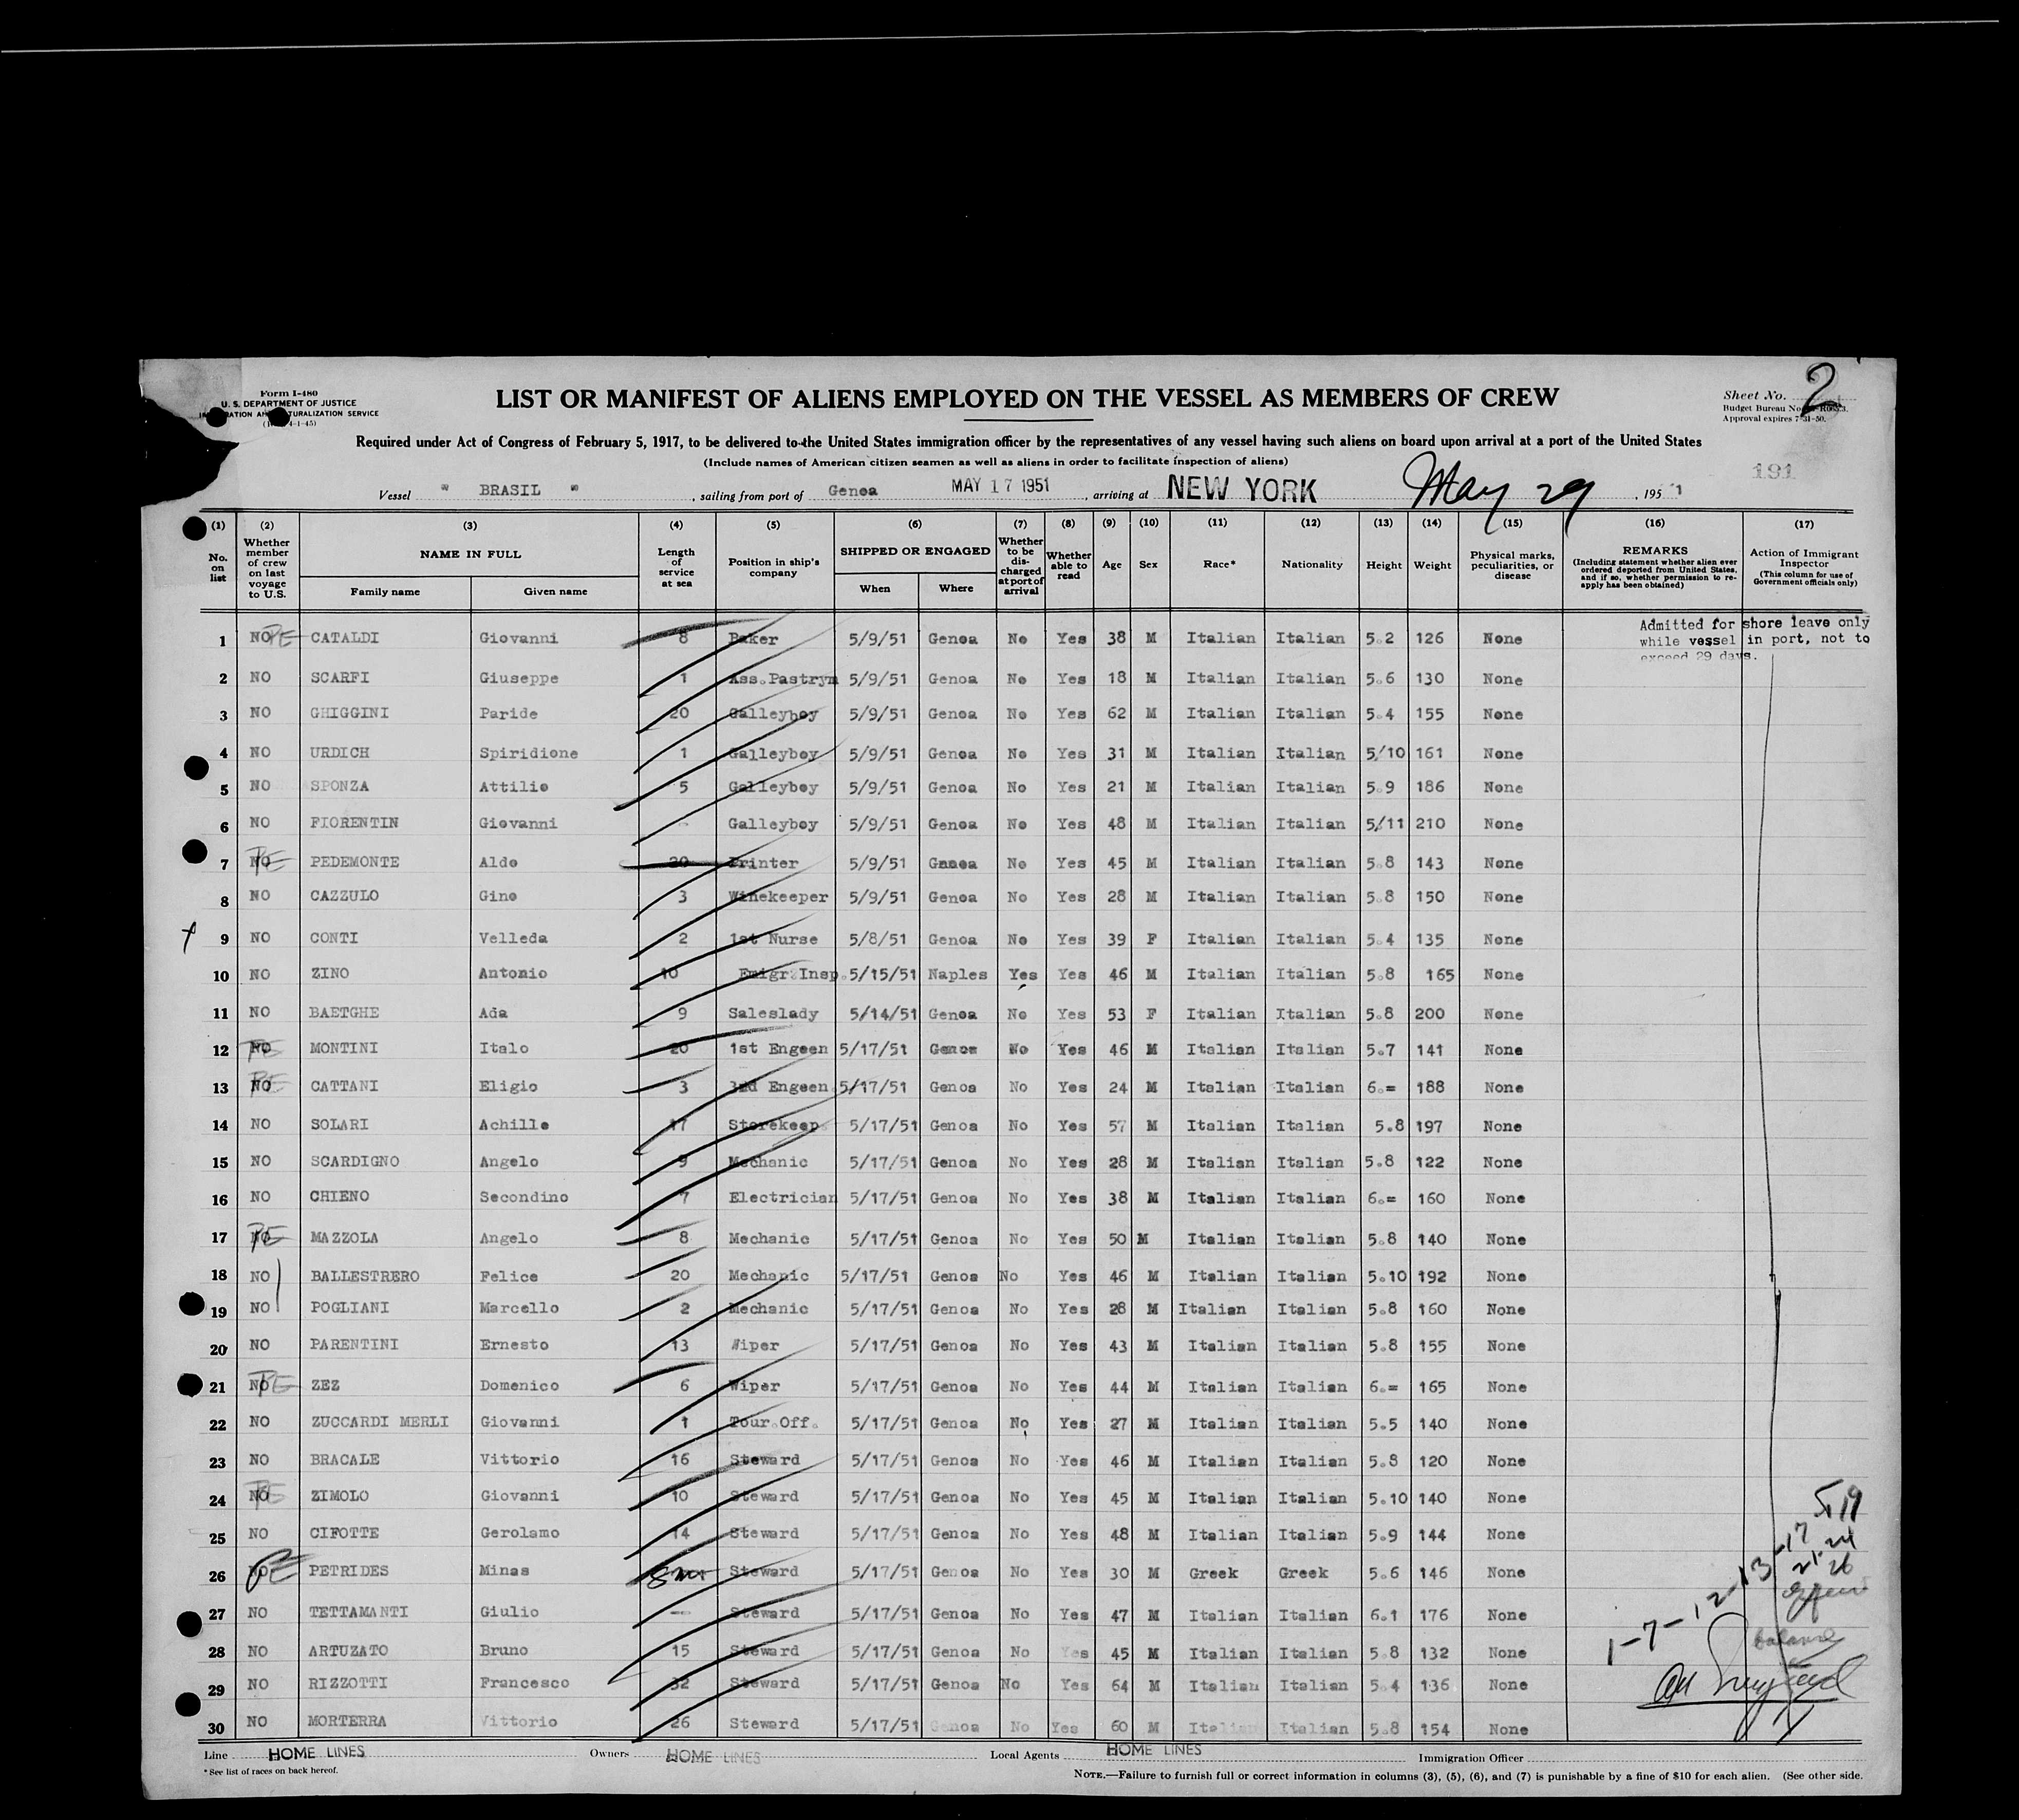 Form I-480
U. S. DEPARTMENT OF JUSTICE
IMMIGRATION AND NATURALIZATION SERVICE
4-1-45)
LIST OR MANIFEST OF ALIENS EMPLOYED ON THE VESSEL AS MEMBERS OF CREW
Sheet No. 2
Budget Bureau No.
Approval expires 7-31-50.
Required under Act of Congress of February 5, 1917, to be delivered to the United States immigration officer by the representatives of any vessel having such aliens on board upon arrival at a port of the United States
(Include names of American citizen seamen as well as aliens in order to facilitate inspection of aliens)
191
Vessel " BRASIL " , sailing from port of Genoa MAY 17 1951 , arriving at NEW YORK May 29 , 1951
(1) (2) (3) (4) (5) (6) (7) (8) (9) (10) (11) (12) (13) (14) (15) (16) (17)
No. on list
Whether member of crew on last voyage to U.S.
NAME IN FULL
Family name
Given name
Length of service at sea
Position in ship's company
SHIPPED OR ENGAGED
When
Where
Whether to be discharged at port of arrival
Whether able to read
Age
Sex
Race*
Nationality
Height
Weight
Physical marks, peculiarities, or disease
REMARKS
(Including statement whether alien ever ordered deported from United States, and if so, whether permission to reapply has been obtained)
Action of Immigrant Inspector
(This column for use of Government officials only)
Admitted for shore leave only
while vessel in port, not to
exceed 29 days.
1 NO PE CATALDI Giovanni 8 Baker 5/9/51 Genoa No Yes 38 M Italian Italian 5.2 126 None
2 NO SCARFI Giuseppe 1 Ass.Pastrym 5/9/51 Genoa No Yes 18 M Italian Italian 5.6 130 None
3 NO GHIGGINI Paride 20 Galleyboy 5/9/51 Genoa No Yes 62 M Italian Italian 5.4 155 None
4 NO URDICH Spiridione 1 Galleyboy 5/9/51 Genoa No Yes 31 M Italian Italian 5/10 161 None
5 NO SPONZA Attilio 5 Galleyboy 5/9/51 Genoa No Yes 21 M Italian Italian 5.9 186 None
6 NO FIORENTIN Giovanni - Galleyboy 5/9/51 Genoa No Yes 48 M Italian Italian 5/11 210 None
7 NO PE PEDEMONTE Aldo 20 Printer 5/9/51 Genoa No Yes 45 M Italian Italian 5.8 143 None
8 NO CAZZULO Gino 3 Winekeeper 5/9/51 Genoa No Yes 28 M Italian Italian 5.8 150 None
9 NO CONTI Velleda 2 1st Nurse 5/8/51 Genoa No Yes 39 F Italian Italian 5.4 135 None
10 NO ZINO Antonio 10 Emigr.Insp. 5/15/51 Naples Yes Yes 46 M Italian Italian 5.8 165 None
11 NO BAETGHE Ada 9 Saleslady 5/14/51 Genoa No Yes 53 F Italian Italian 5.8 200 None
12 NO PE MONTINI Italo 20 1st Engeen 5/17/51 Genoa No Yes 46 M Italian Italian 5.7 141 None
13 NO PE CATTANI Eligio 3 3rd Engeen. 5/17/51 Genoa No Yes 24 M Italian Italian 6.= 188 None
14 NO SOLARI Achille 17 Storekeep. 5/17/51 Genoa No Yes 57 M Italian Italian 5.8 197 None
15 NO SCARDIGNO Angelo 9 Mechanic 5/17/51 Genoa No Yes 28 M Italian Italian 5.8 122 None
16 NO CHIENO Secondino 7 Electrician 5/17/51 Genoa No Yes 38 M Italian Italian 6.= 160 None
17 NO PE MAZZOLA Angelo 8 Mechanic 5/17/51 Genoa No Yes 50 M Italian Italian 5.8 140 None
18 NO BALLESTRERO Felice 20 Mechanic 5/17/51 Genoa No Yes 46 M Italian Italian 5.10 192 None
19 NO POGLIANI Marcello 2 Mechanic 5/17/51 Genoa No Yes 28 M Italian Italian 5.8 160 None
20 NO PARENTINI Ernesto 13 Wiper 5/17/51 Genoa No Yes 43 M Italian Italian 5.8 155 None
21 NO PE ZEZ Domenico 6 Wiper 5/17/51 Genoa No Yes 44 M Italian Italian 6.= 165 None
22 NO ZUCCARDI MERLI Giovanni 1 Tour.Off. 5/17/51 Genoa No Yes 27 M Italian Italian 5.5 140 None
23 NO BRACALE Vittorio 16 Steward 5/17/51 Genoa No Yes 46 M Italian Italian 5.8 120 None
24 NO PE ZIMOLO Giovanni 10 Steward 5/17/51 Genoa No Yes 45 M Italian Italian 5.10 140 None
25 NO CIFOTTE Gerolamo 14 Steward 5/17/51 Genoa No Yes 48 M Italian Italian 5.9 144 None
26 NO PE PETRIDES Minas Steward 5/17/51 Genoa No Yes 30 M Greek Greek 5.6 146 None
27 NO TETTAMANTI Giulio - Steward 5/17/51 Genoa No Yes 47 M Italian Italian 6.1 176 None
28 NO ARTUZATO Bruno 15 Steward 5/17/51 Genoa No Yes 45 M Italian Italian 5.8 132 None
29 NO RIZZOTTI Francesco 32 Steward 5/17/51 Genoa No Yes 64 M Italian Italian 5.4 136 None
30 NO MORTERRA Vittorio 26 Steward 5/17/51 Genoa No Yes 60 M Italian Italian 5.8 154 None
1-7-12-13-17
21-24
26
balance
Line HOME LINES Owners HOME LINES Local Agents HOME LINES Immigration Officer
* See list of races on back hereof.
NOTE.—Failure to furnish full or correct information in columns (3), (5), (6), and (7) is punishable by a fine of $10 for each alien. (See other side.